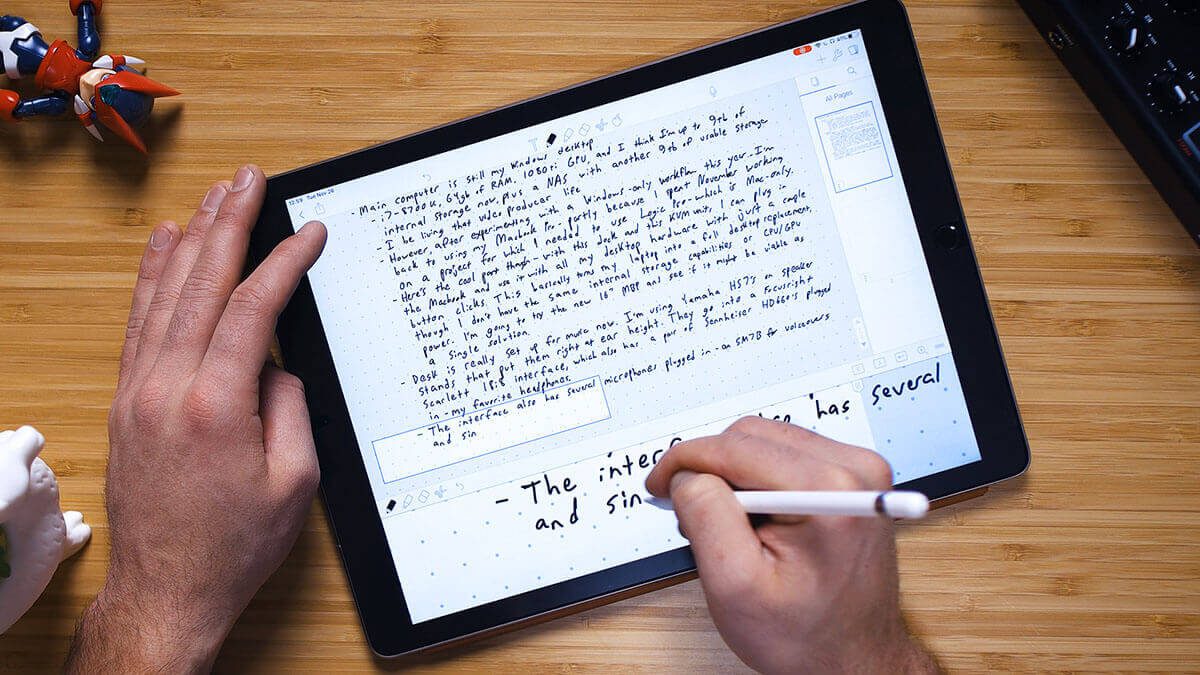 12:59 Tue Nov 26
61%
All Pages
- Main computer is still my Windows desktop
- i7-8700K, 64gb of RAM, 1080ti GPU, and I think I'm up to 9tb of
internal storage now, plus a NAS with another 9tb of usable storage
- I be living that video producer life
However, after experimenting with a Windows-only workflow this year, I'm
back to using my Macbook Pro - partly because I spent November working
on a project for which I needed to use Logic Pro - which is Mac-only.
- Here's the cool part though - with this dock and this KVM unit, I can plug in
the Macbook and use it with all my desktop hardware with just a couple
button clicks. This basically turns my laptop into a full desktop replacement,
though I don't have the same internal storage capabilities or CPU/GPU
power. I'm going to try the new 16" MBP and see if it might be viable as
a single solution.
- Desk is really set up for music now. I'm using Yamaha HS7's on speaker
stands that put them right at ear height. They go into a Focusright
Scarlett 18i8 interface, which also has a pair of Sennheiser HD660's plugged
in - my favorite headphones.
- The interface also has several microphones plugged in - an SM7B for voiceovers
and sin
- The inter has several
and sin